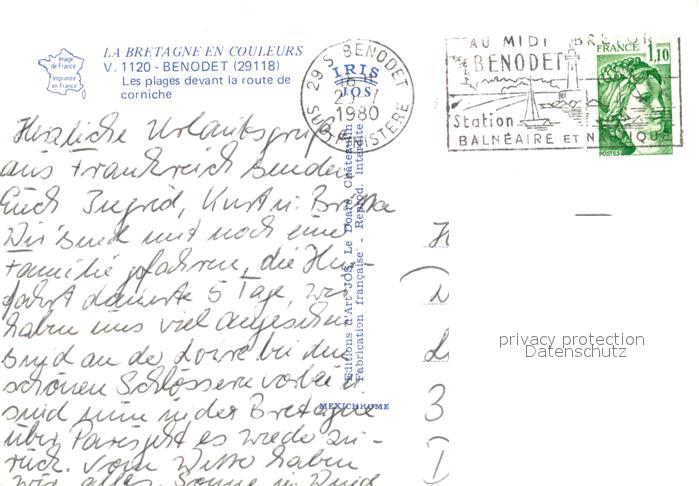 Image
de France
Imprimée
en France
LA BRETAGNE EN COULEURS
V. 1120 - BENODET (29118)
Les plages devant la route de
corniche
IRIS
JOS
29 S. BENODET
1980
SUD-FINISTERE
AU MIDI BRETON
BENODET
Station
BALNÉAIRE ET NAUTIQUE
FRANCE
1,10
POSTES
Herzliche Urlaubsgrüße
aus Frankreich senden
Euch Ingrid, Kurt u. Britta
Wir sind mit noch einer
Familie gefahren, die Hin-
fahrt dauerte 5 Tage, wir
haben uns viel angesehen
sind an der Loire bei den
schönen Schlössern vorbei u
sind nun in der Bretagne
über Paris geht es wieder zu-
rück. Vom Wetter haben
wir alles. Sonne u. Wind
Editions d'Art "JOS" Le Doaré, Châteaulin
Fabrication française - Reprod. interdite
MEXICHROME
privacy protection
Datenschutz